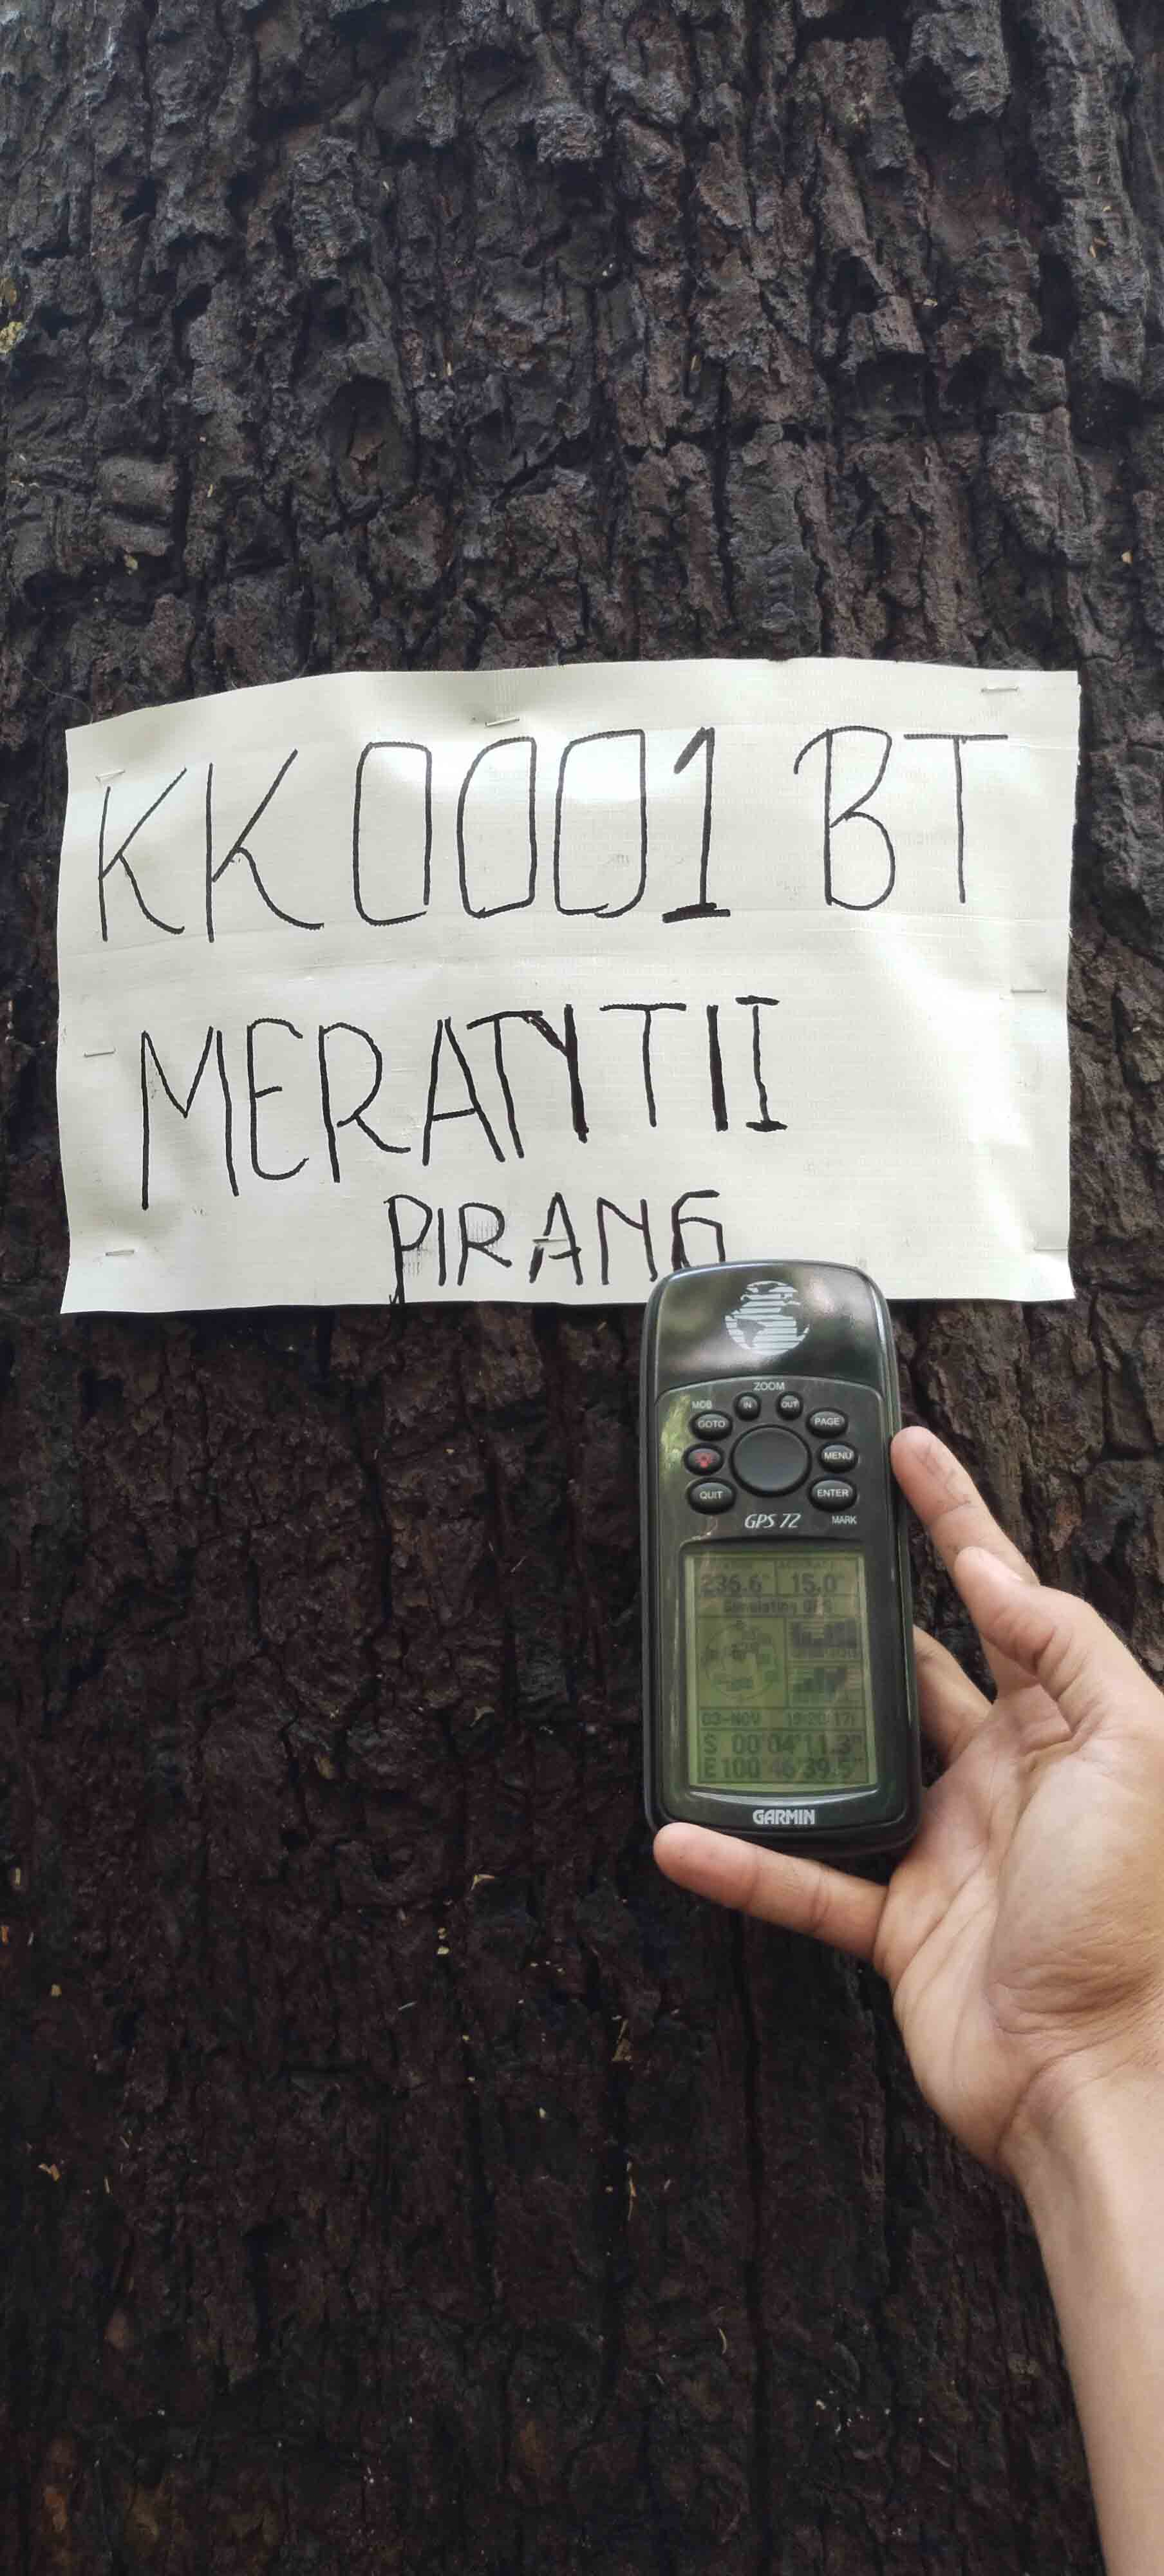 KK 0001 BT
MERATYTII
PIRANG
ZOOM
MOB IN OUT
GOTO PAGE
MENU
QUIT ENTER
GPS 72 MARK
236.6° 15.0°
Simulating GPS
03-NOV
S 00°04'11.3"
E100°46'39.5"
GARMIN